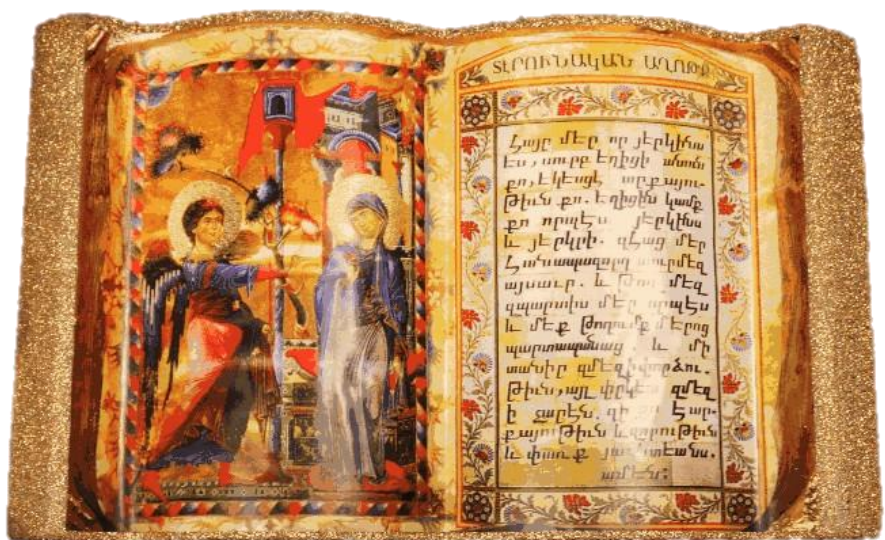 ՏԷՐՈՒՆԱԿԱՆ ԱՂՈԹՔ
Հայր մեր որ յերկինս
ես, սուրբ եղիցի անուն
քո, եկեսցէ արքայու-
թիւն քո. եղիցին կամք
քո որպէս յերկինս
և յերկրի. զհաց մեր
Հանապազորդ տուր մեզ
այսաւր. և թող մեզ
զպարտիս մեր որպէս
և մեք թողումք մերոց
պարտապանաց և մի
տանիր զմեզ ի փորձու.
թիւն, այլ փրկեա զմեզ
ի չարէն. զի քո է ար-
քայութիւն և զորութիւն
և փառք յաւիտեանս.
ամէն: